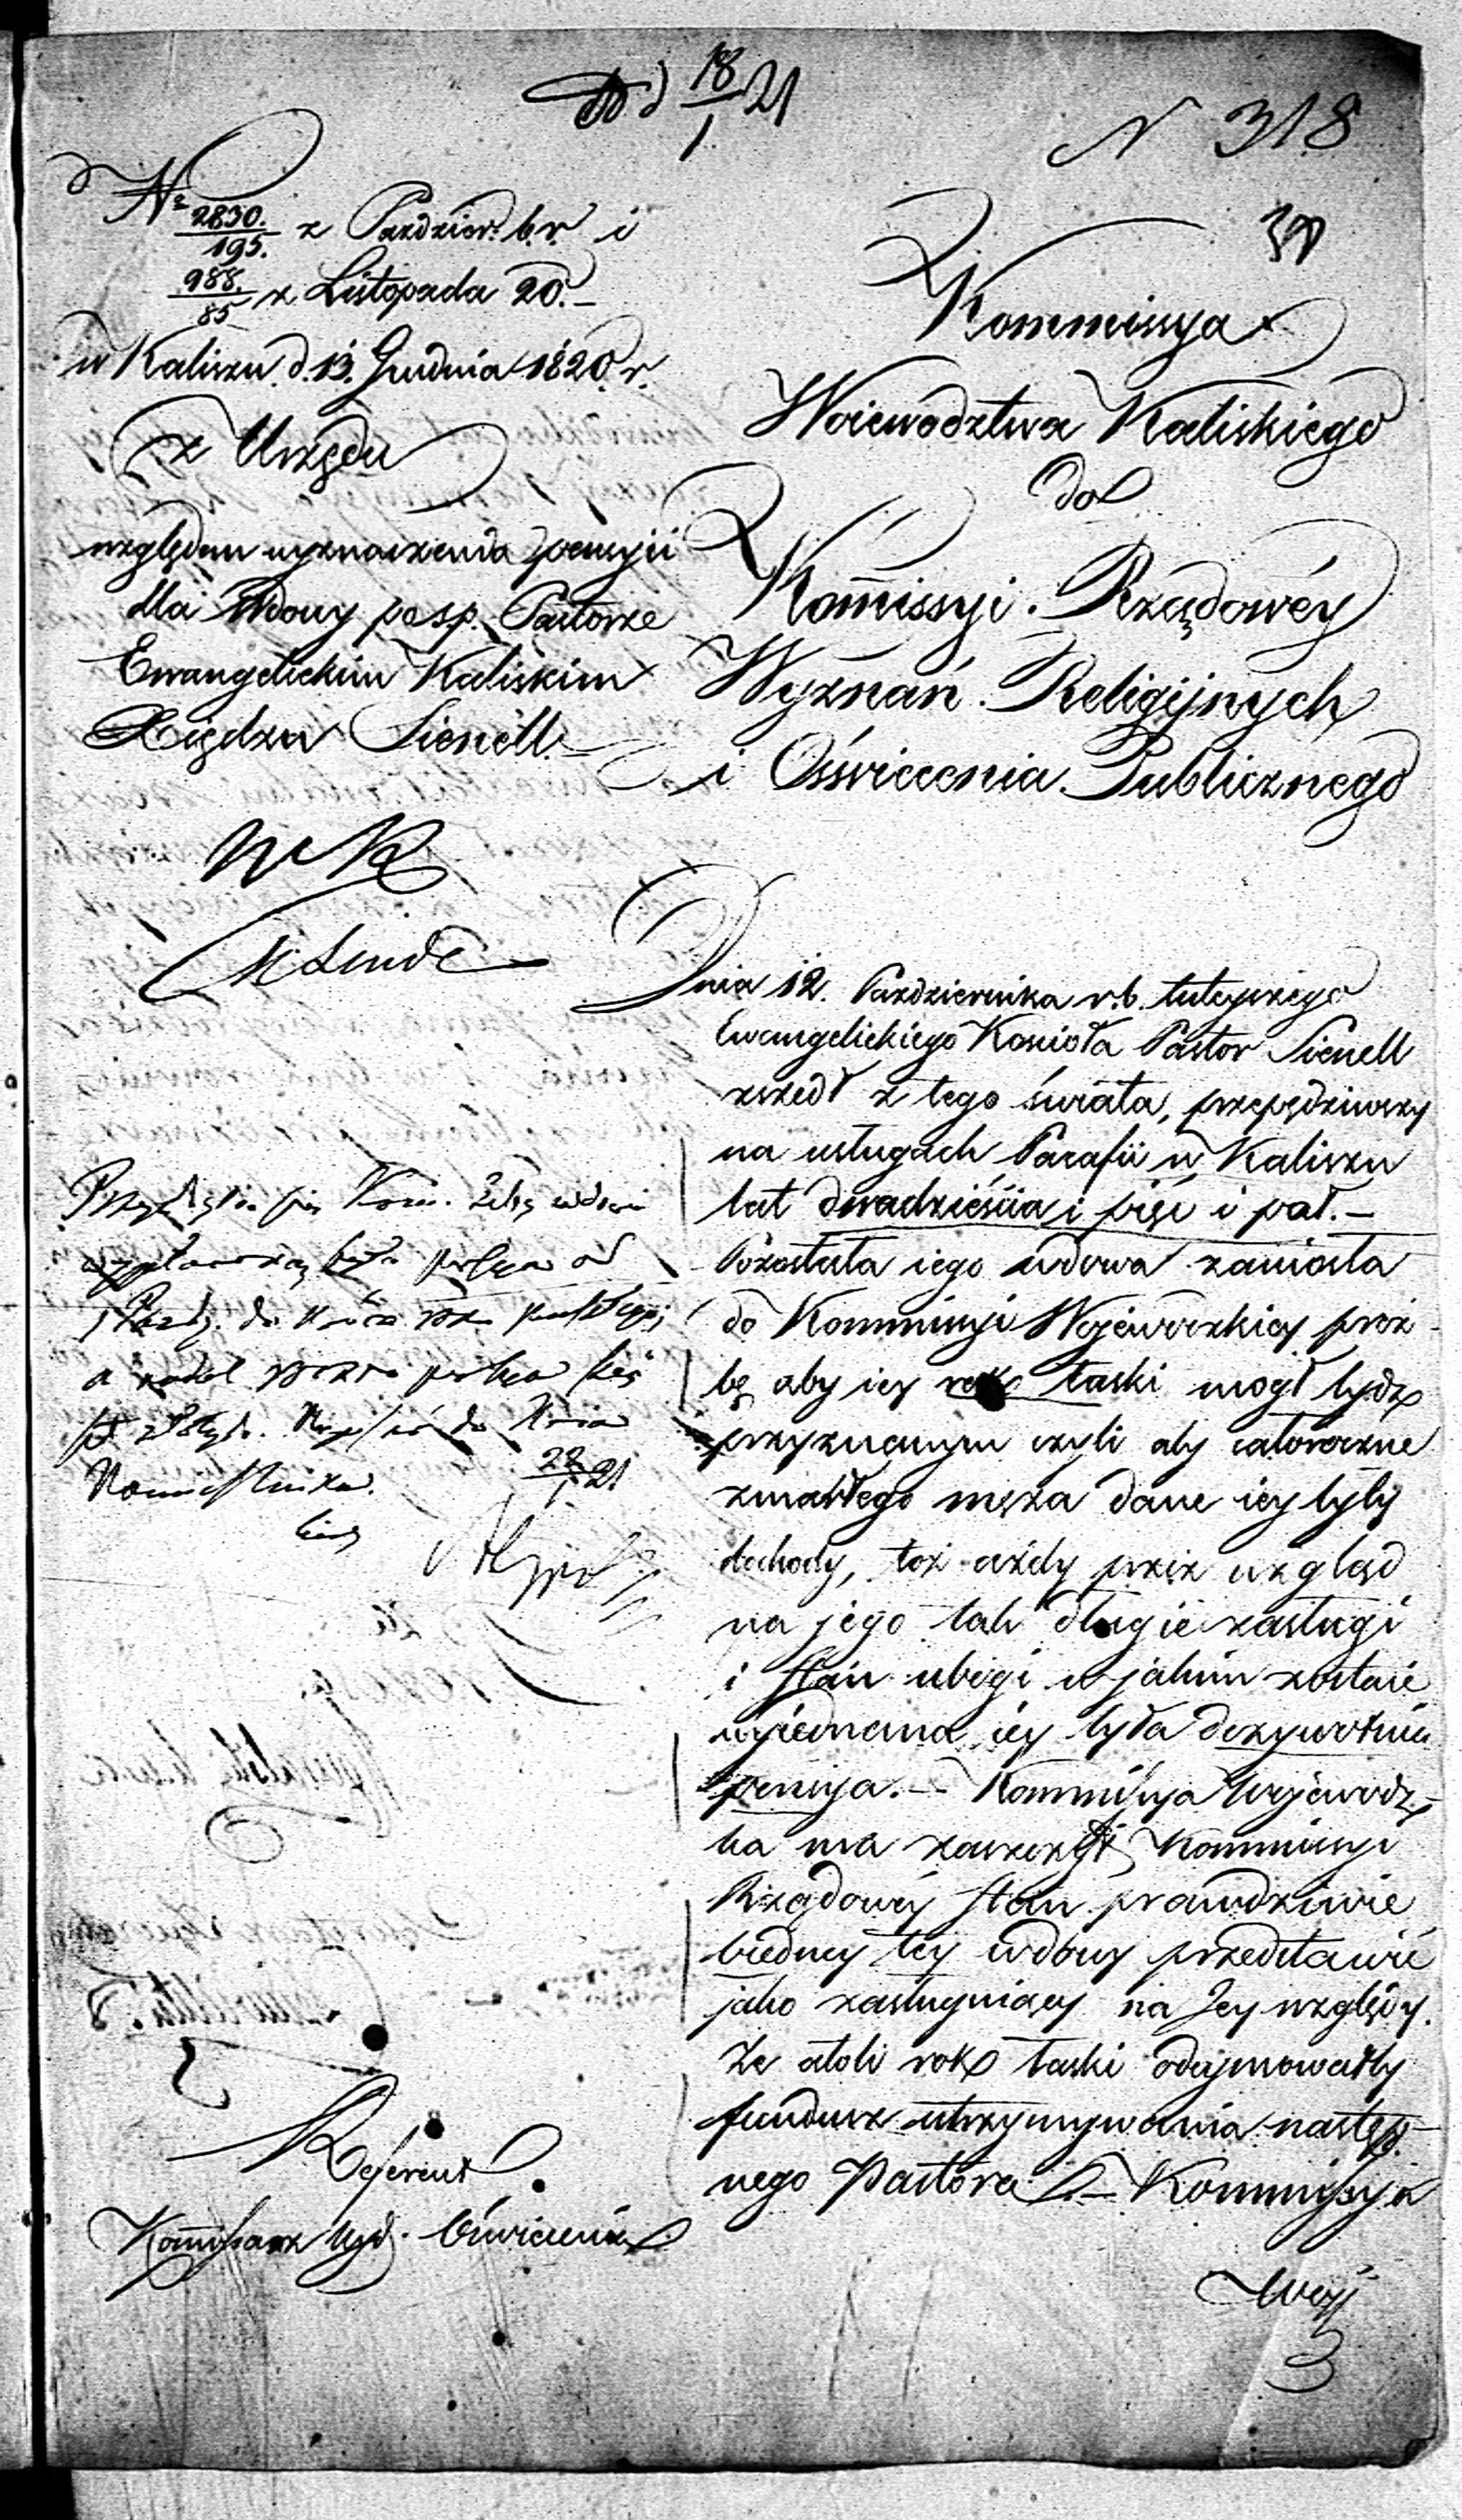 d 18/1 21
N 318
39
Nº 2830./195. z Paxdzier. b.r. i
988./85 z Listopada 20.—
w Kaliszu d. 13. Grudnia 1820. r.
z Urzędu
względem wyznaczenia pensyii
dla Wdowy po sp. Pastorze
Ewangelickim Kaliskim
Xiędzu Sienell.
Kommissya
Woiewodztwa Kaliskiego
do
Kom̄issyi Rządowéy
Wyznań Religiynych
i Oświecenia Publicznego
WR
Linde
Dnia 12. Pazdziernika r.b. tuteyszego
Ewangelickiego Kosioła Pastor Sienell
zszedł z tego świata, przepędziwszy
na usługach Parafii w Kaliszu
lat dwadzieścia i pięć i poł.—
Pozostała iego wdowa zaniosła
do Kommissyi Wojewodzkiey proź-
bę aby iey rok łaski mogł bydz
przyznanym czyli aby całoroczne
zmarłego męża dane iey były
dochody, toż ażeby przez wzgląd
na jego tak długie zasługi
i stan ubogi w jakim zostaie
wyiednana iey była dożywotnia
pensya.— Kommissya Wojewodz-
ka ma zaszczyt Kommissyi
Rządowéy stan prawdziwie
biedney tey wdowy przedstawić
jako zasługuiącey na Jey względy.
Ze atoli rok łaski odeymowałby
fundusz utrzymywania następ-
nego Pastora — Kommissya
Woj
Kom. żeby wdowie
wypłaconą była pensya od
1 Pazdz. do końca roku
a nadal
do Xcia
Namiestnika. 22/1 21
Referent
Kom̄issarz Wydz. Oświecenia